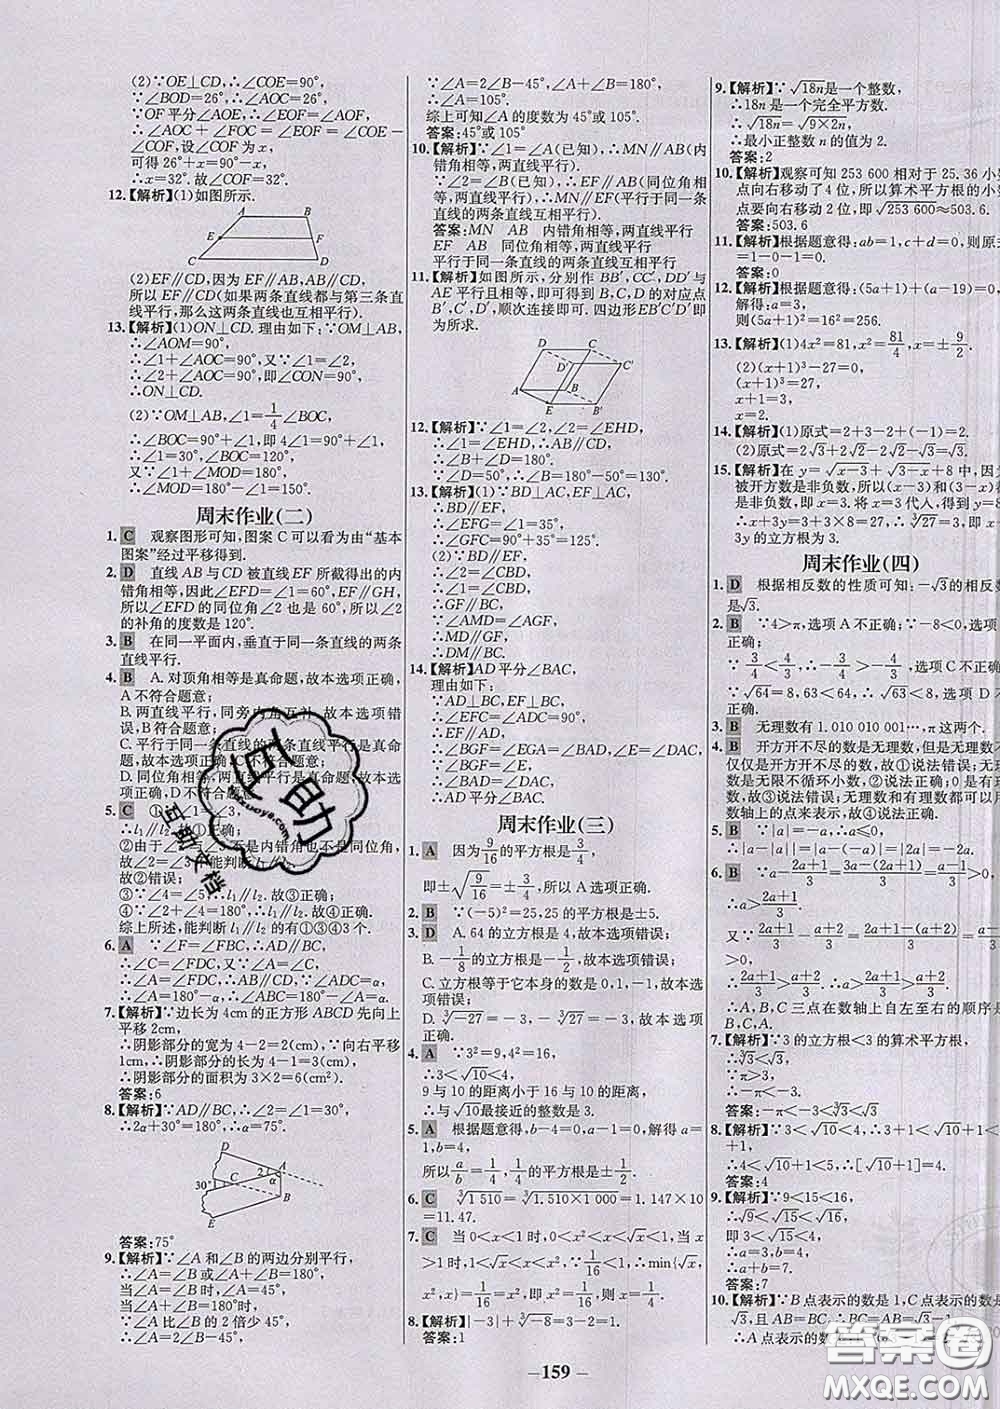 (2)∵OE⊥CD,∴∠COE=90°.
∵∠BOD=26°,∴∠AOC=26°.
∵OF平分∠AOE,∴∠EOF=∠AOF.
∴∠AOC+∠FOC=∠EOF=∠COE-
∠COF,设∠COF为x.
可得26°+x=90°-x.
∴x=32°.故∠COF=32°.
12.【解析】(1)如图所示.
A B
E F
C D
(2)EF∥CD,因为EF∥AB,AB∥CD,
所以EF∥CD(如果两条直线都与第三条直
线平行,那么这两条直线也互相平行).
13.【解析】(1)ON⊥CD.理由如下:∵OM⊥AB,
∴∠AOM=90°,
∴∠1+∠AOC=90°,又∵∠1=∠2,
∴∠2+∠AOC=90°,即∠CON=90°,
∴ON⊥CD.
(2)∵OM⊥AB,∠1=1/4∠BOC,
∴∠BOC=90°+∠1,即4∠1=90°+∠1,
∴∠1=30°,∴∠BOC=120°,
又∵∠1+∠MOD=180°,
∴∠MOD=180°-∠1=150°.
周末作业(二)
1. C 观察图形可知,图案C可以看为由“基本
图案”经过平移得到.
2. D 直线AB与CD被直线EF所截得出的内
错角相等,因此∠EFD=∠1=60°,EF∥GH,
所以∠EFD的同位角∠2也是60°,所以∠2
的补角的度数是120°.
3. B 在同一平面内,垂直于同一条直线的两条
直线平行.
4. B A.对顶角相等是真命题,故本选项正确,
A不符合题意;
B.两直线平行,同旁内角互补,故本选项错
误,B符合题意;
C.平行于同一条直线的两条直线平行是真命
题,故本选项正确,C不符合题意;
D.内错角相等,两直线平行是真命题,故本选
项正确,D不符合题意.
5. C ①∵∠1=∠3,
∴l₁∥l₂.故①正确;
②由于∠2与∠3不是内错角也不是同位角,
故∠2=∠3,不能判断l₁∥l₂.
故②错误;
③∵∠4=∠5,∴l₁∥l₂.故③正确;
④∵∠2+∠4=180°,∴l₁∥l₂.故④正确.
综上所述,能判断l₁∥l₂的有①③④3个.
6. A ∵∠F=∠FBC,∴AD∥BC,
∴∠C=∠FDC,又∵∠A=∠C,
∴∠A=∠FDC,又∵∠ADC=α,
∴∠A=180°-α,∴∠C=180°-α.
7.【解析】∵边长为4cm的正方形ABCD先向上
平移2cm,
∴阴影部分的宽为4-2=2(cm),∵向右平移
1cm,∴阴影部分的长为4-1=3(cm),
∴阴影部分的面积为3×2=6(cm²).
答案:6
8.【解析】∵AD∥BC,∴∠2=∠1=α,
∴2α+30°=180°,∴∠α=75°.
D
A
2
α
30° C
1
B
E
答案:75°
9.【解析】∵∠A和∠B的两边分别平行,
∴∠A=∠B或∠A+∠B=180°,
当∠A+∠B=180°时,
∵∠A比∠B的2倍少45°,
∴∠A=2∠B-45°,
∵∠A=2∠B-45°,∠A+∠B=180°,
∴∠A=105°.
综上可知∠A的度数为45°或105°.
答案:45°或105°
10.【解析】∵∠1=∠A(已知),∴MN∥AB(内
错角相等,两直线平行).
∵∠2=∠B(已知),∴EF∥AB(同位角相
等,两直线平行),∴MN∥EF(平行于同一条
直线的两条直线互相平行).
答案:MN AB 内错角相等,两直线平行
EF AB 同位角相等,两直线平行
平行于同一条直线的两条直线互相平行
11.【解析】如图所示,分别作BB′,CC′,DD′与
AE平行且相等,即可得到B,C,D的对应点
B′,C′,D′,顺次连接即可.四边形EB′C′D′即
为所求.
D C
D′ C′
A B
E B′
12.【解析】∵∠1=∠2,∠2=∠EHD,
∴∠1=∠EHD,∴AB∥CD,
∴∠B+∠D=180°,
∵∠D=50°,∴∠B=180°-50°=130°.
13.【解析】(1)∵BD⊥AC,EF⊥AC,
∴BD∥EF,
∴∠EFG=∠1=35°,
∴∠GFC=90°+35°=125°.
(2)∵BD∥EF,
∴∠2=∠CBD,
∴∠1=∠CBD,
∴GF∥BC,
∵∠AMD=∠AGF,
∴MD∥GF,
∴DM∥BC.
14.【解析】AD平分∠BAC,
理由如下:
∵AD⊥BC,EF⊥BC,
∴∠EFC=∠ADC=90°,
∴EF∥AD,
∴∠BGF=∠EGA=∠BAD,∠E=∠DAC,
∵∠BGF=∠E,
∴∠BAD=∠DAC,
∴AD平分∠BAC.
周末作业(三)
1. A 因为9/16的平方根是±3/4,
即±√(9/16)=±3/4,所以A选项正确.
2. B ∵(-5)²=25,25的平方根是±5.
3. D A.64的立方根是4,故本选项错误;
B.-1/8的立方根是-1/2,故本选项错误;
C.立方根等于它本身的数有0,1,-1,故本选
项错误;
D.∛-27=-3,-∛27=-3,故本选项
正确.
4. A ∵3²=9,4²=16,
∴3<√10<4,
9与10的距离小于16与10的距离,
∴与√10最接近的整数是3.
5. A 根据题意得,b-4=0,a-1=0,解得a=
1,b=4,
所以a/b=1/4,1/4的平方根是±1/2.
6. C ∛1510=∛1.510×1000=1.147×10
=11.47.
7. C 当0<x<1时,0<x²<x<√x<1;当x
≥1时,1<√x<x<x²,∴min{√x,
x²,x}=1/16=x²,所以x=1/4.
8.【解析】|-3|+∛-8=3-2=1.
答案:1
9.【解析】∵√18n是一个整数,
∴18n是一个完全平方数.
∴√18n=√9×2n,
∴最小正整数n的值为2.
答案:2
10.【解析】观察可知253600相对于25.36小数
点向右移动了4位,所以算术平方根的小数
点要向右移动2位,即√253600≈503.6.
答案:503.6
11.【解析】根据题意得:ab=1,c+d=0,则原式
=1-0-1=0.
答案:0
12.【解析】根据题意得:(5a+1)+(a-19)=0,
解得:a=3,
则(5a+1)²=16²=256.
13.【解析】(1)4x²=81,x²=81/4,x=±9/2.
(2)(x+1)³-27=0,
(x+1)³=27,
x+1=3,
x=2.
14.【解析】(1)原式=2+3-2+(-1)=2.
(2)原式=2√3+2√2-2√2-√3=√3.
15.【解析】在y=√x-3+√3-x+8中,因为
被开方数是非负数,所以(x-3)和(3-x)都
是非负数,即x=3.将x=3代入,得到y=8
∴x+3y=3+3×8=27,∴∛27=3,即x+3y
的立方根为3.
周末作业(四)
1. D 根据相反数的性质可知:-√3的相反数
是√3.
2. B ∵4>π,选项A不正确;∵-8<0,选项B
正确;
∵√64=8,63<64,∴√63<8,选项D不
正确.
3. B 无理数有1.010010001…,π这两个.
4. B 开方开不尽的数是无理数,但是无理数不
仅仅是开方开不尽的数,故①说法错误;无理
数是无限不循环小数,②说法正确;0是有理
数,③说法错误;无理数和有理数都可以用
数轴上的点来表示,故④说法正确.
5. B ∵|a|=-a,∴a≤0,
6. B
∴A,B,C三点在数轴上自左至右的顺序是
B,C,A.
7.【解析】∵3的立方根<3的算术平方根,
∴∛3<√3,
∵π>3,
∴-π<-3,
答案:-π<-3<∛3<√3
8.【解析】∵3<√10<4,∴3+1<√10+1<4
+1,
∴4<√10+1<5,∴[√10+1]=4.
答案:4
9.【解析】∵9<15<16,
∴√9<√15<√16,
即3<√15<4,
∴a=3,b=4,
∴a+b=7.
答案:7
10.【解析】∵B点表示的数是1,C点表示的数是
√3,且AB=BC,
∴A点表示的数
- 159 -
互助
kuxuoye.com
互助文档
答案圈
MXQE.COM